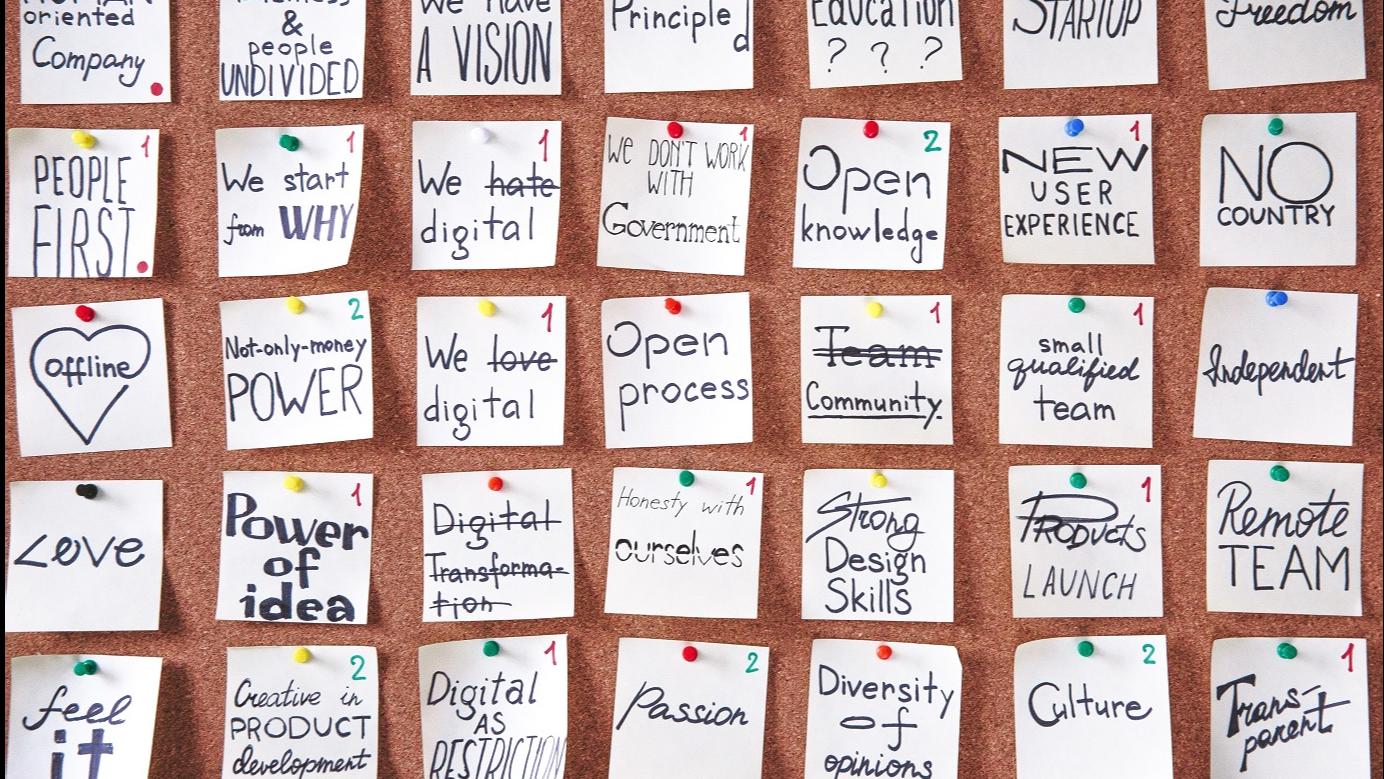 oriented
Company
&
people
UNDIVIDED
We have
A VISION
Principled
Education
? ? ?
STARTUP
Freedom
1
PEOPLE
FIRST.
1
We start
from WHY
1
We hate
digital
1
We DON'T WORK
WITH
Government
2
Open
knowledge
1
NEW
USER
EXPERIENCE
NO
COUNTRY
offline
2
Not-only-money
POWER
1
We love
digital
Open
process
1
Team
Community.
1
small
qualified
team
Independent
Love
1
Power
of
idea
Digital
Transforma-
tion
1
Honesty with
ourselves
Strong
Design
Skills
1
PRODUCTS
LAUNCH
Remote
TEAM
feel
it
2
Creative in
PRODUCT
development
1
Digital
AS
RESTRICTION
2
Passion
Diversity
of
opinions
2
Culture
1
Trans-
parent